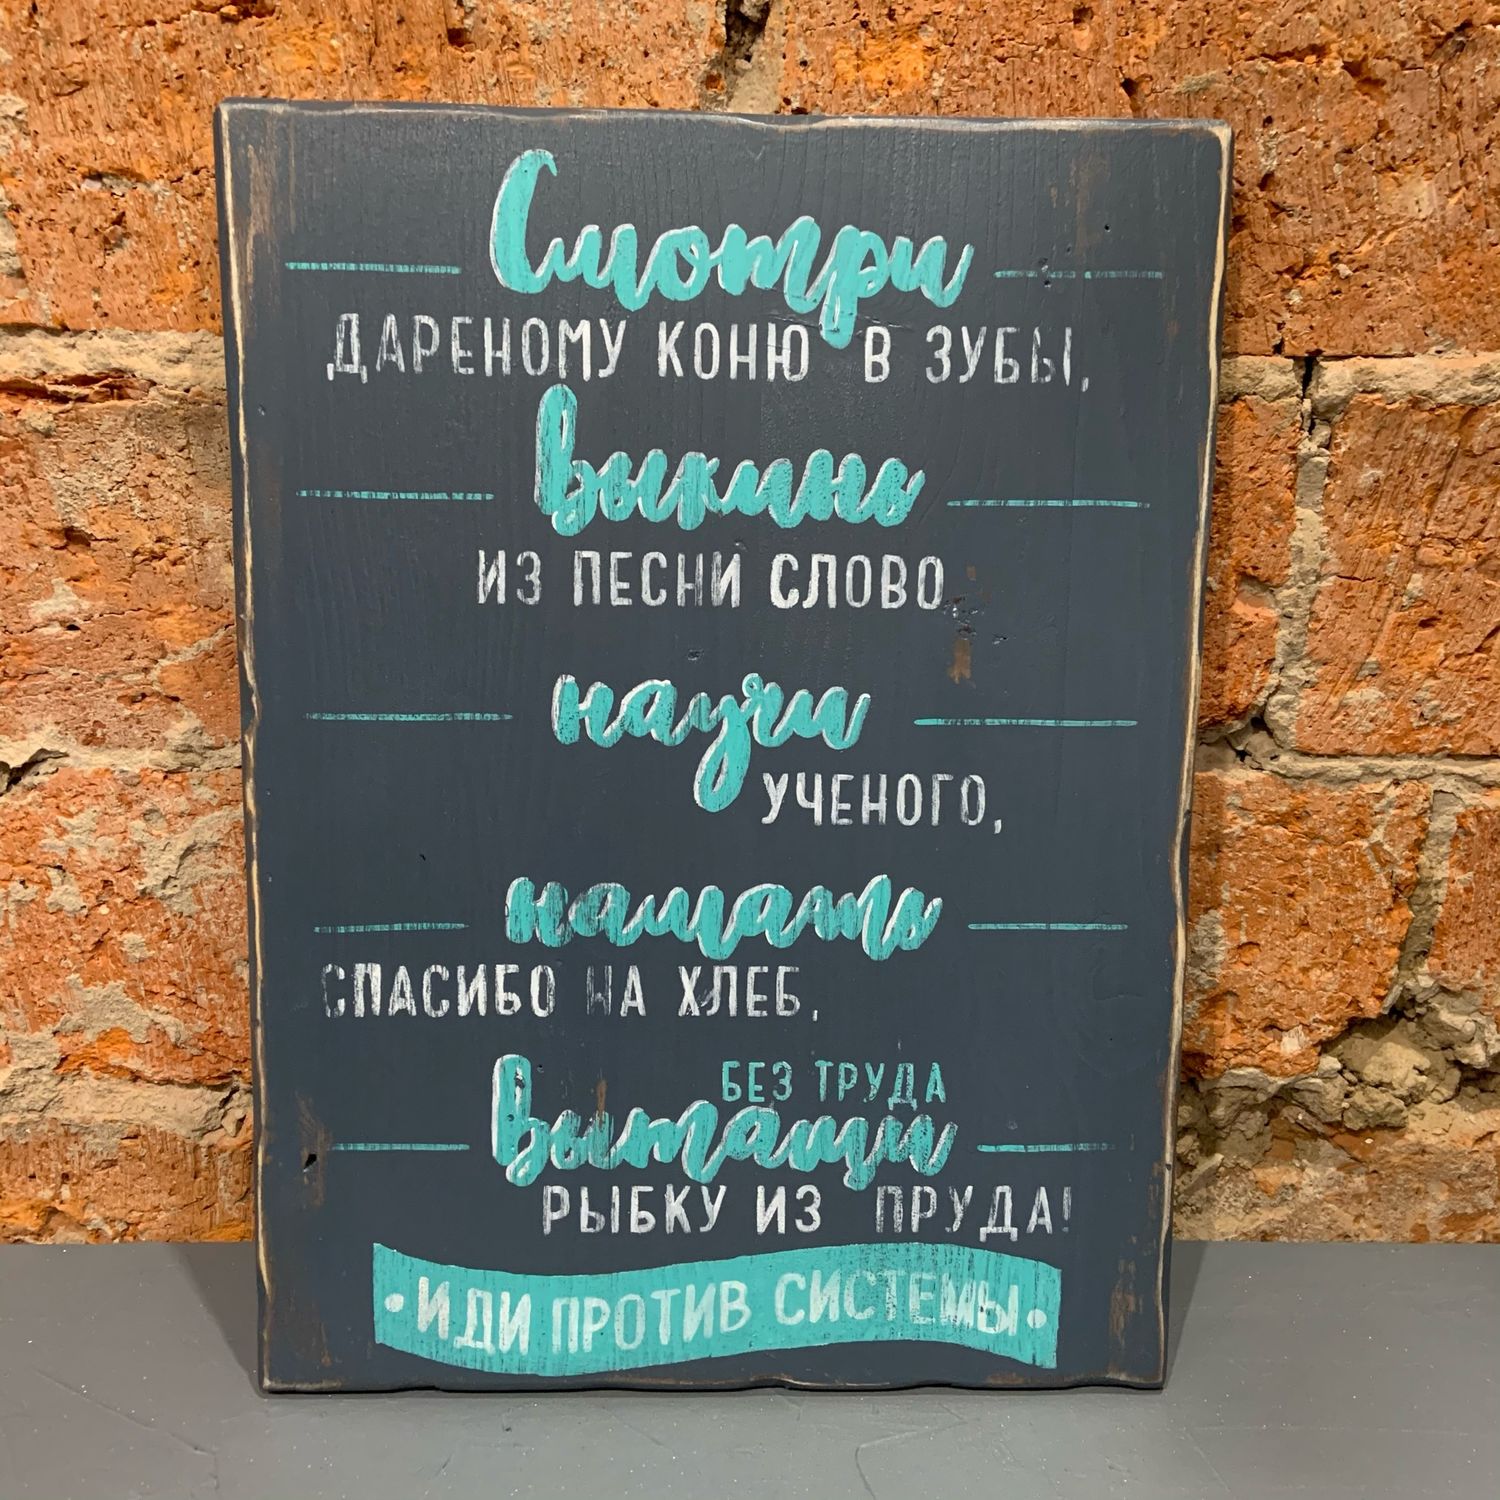 Смотри
ДАРЕНОМУ КОНЮ В ЗУБЫ,
выкинь
ИЗ ПЕСНИ СЛОВО,
научи
УЧЕНОГО,
намать
СПАСИБО НА ХЛЕБ,
БЕЗ ТРУДА
вытащи
РЫБКУ ИЗ ПРУДА!
• ИДИ ПРОТИВ СИСТЕМЫ •